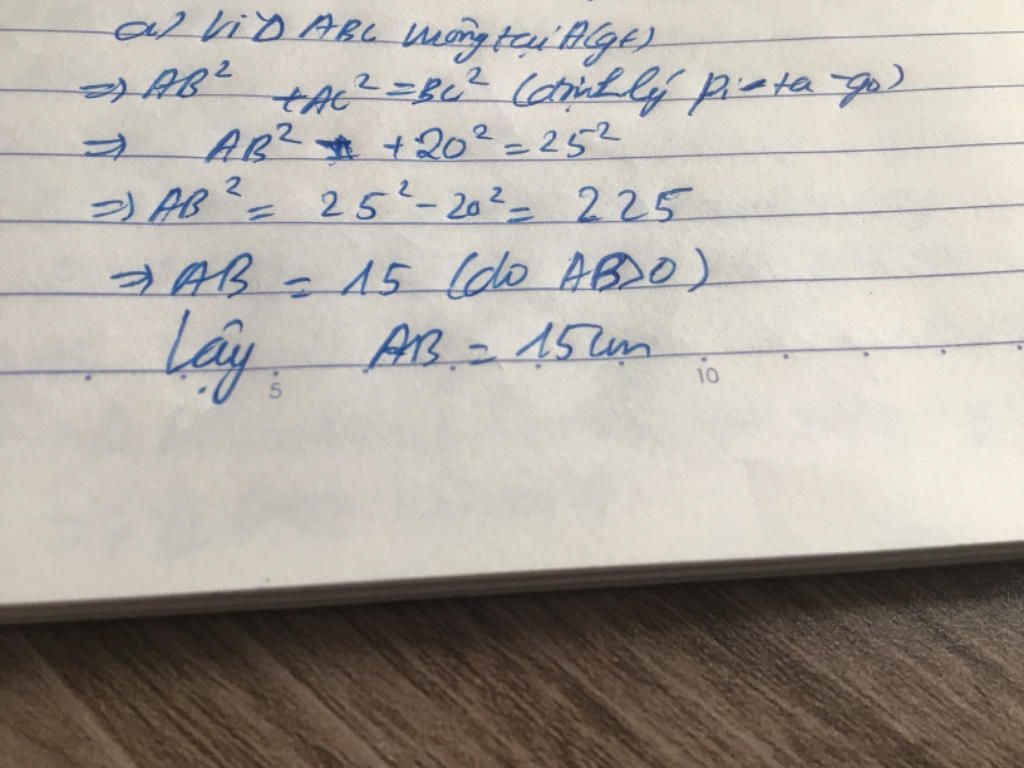 a) Vì Δ ABC vuông tại A(gt)
⇒ AB² + AC² = BC² (định lý Pi-ta-go)
⇒ AB² + 20² = 25²
⇒ AB² = 25² - 20² = 225
⇒ AB = 15 (do AB>0)
Vậy AB = 15cm
5 10